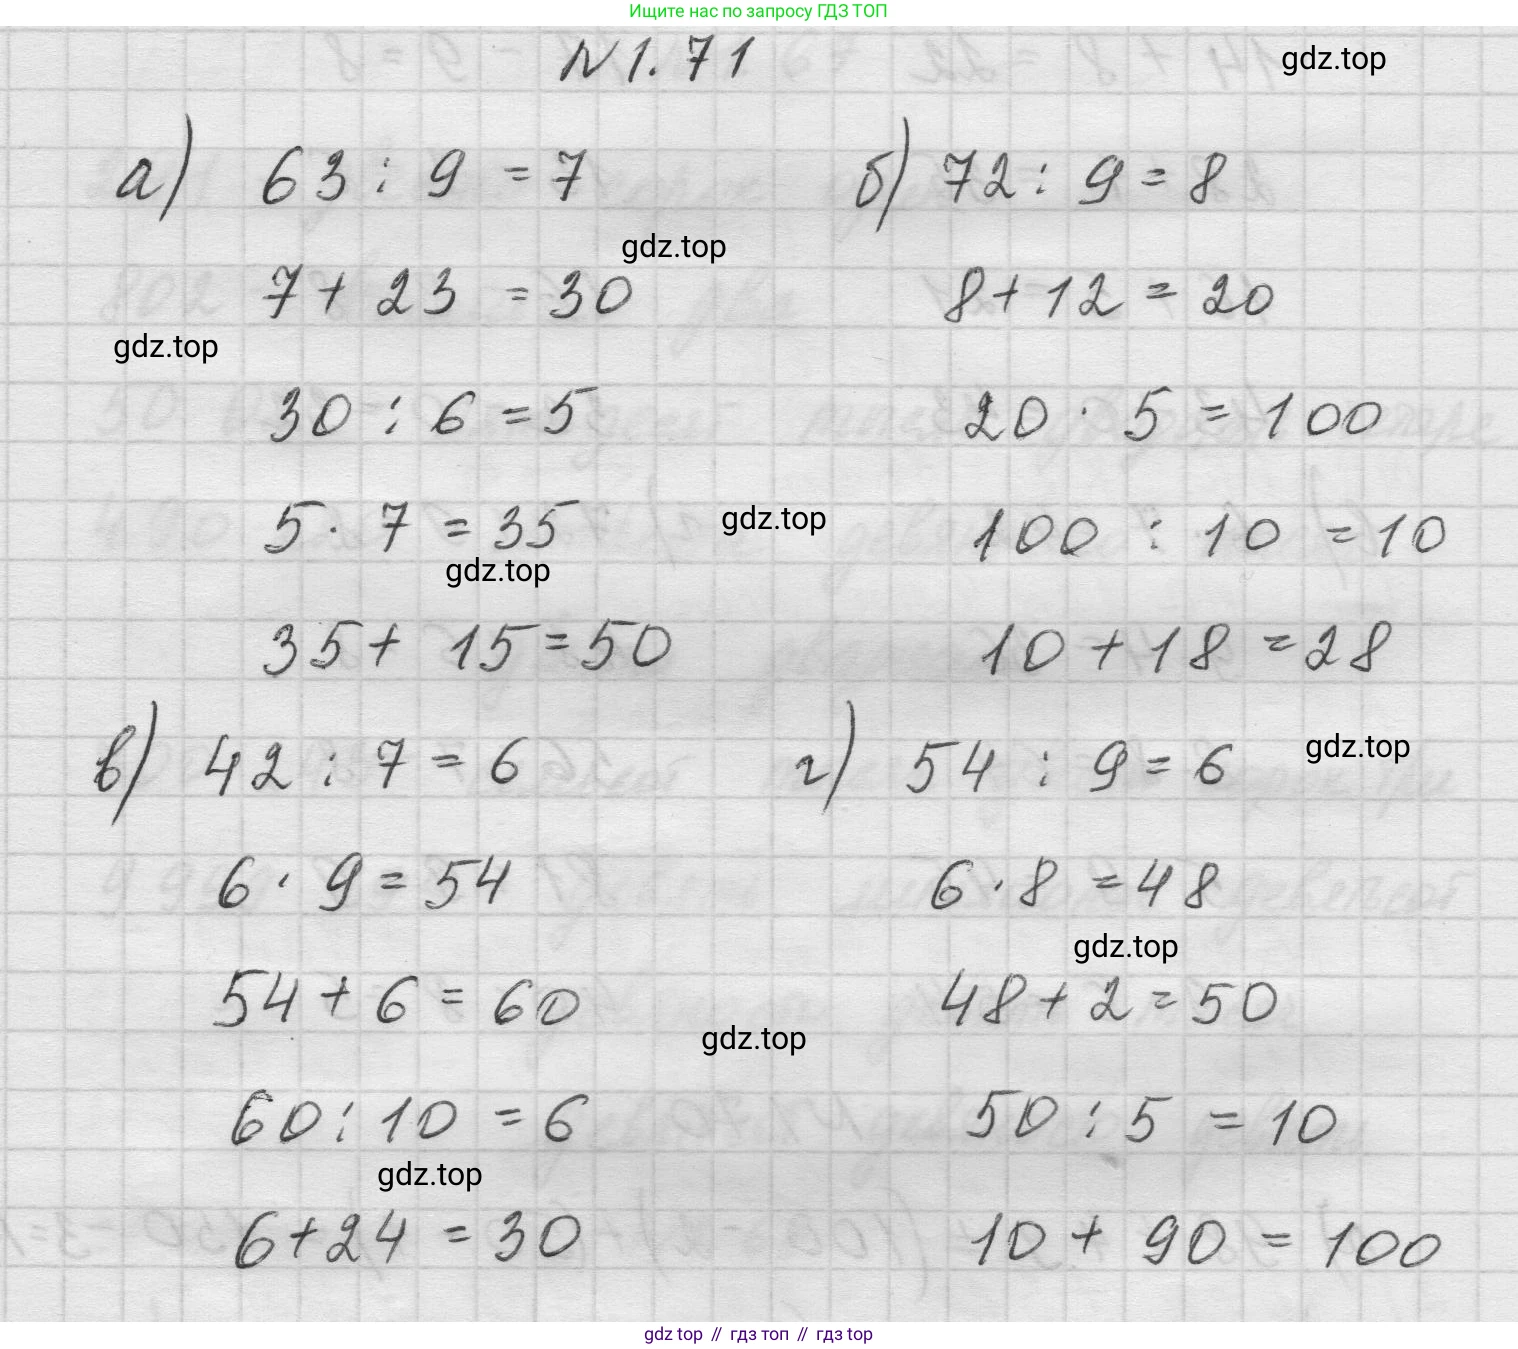 Ищите нас по запросу ГДЗ ТОП
N 1.71
gdz.top
а) 63 : 9 = 7
7 + 23 = 30
30 : 6 = 5
5 · 7 = 35
35 + 15 = 50
б) 72 : 9 = 8
8 + 12 = 20
20 · 5 = 100
100 : 10 = 10
10 + 18 = 28
gdz.top
gdz.top
gdz.top
gdz.top
в) 42 : 7 = 6
6 · 9 = 54
54 + 6 = 60
60 : 10 = 6
6 + 24 = 30
г) 54 : 9 = 6
6 · 8 = 48
48 + 2 = 50
50 : 5 = 10
10 + 90 = 100
gdz.top
gdz.top
gdz.top
gdz.top
gdz top // гдз топ // гдз top